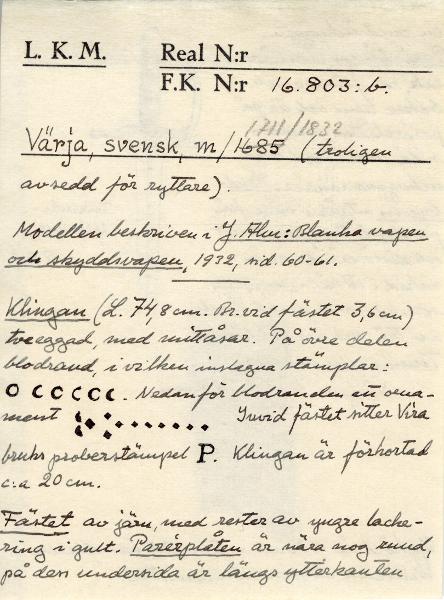 L. K. M. Real N:r
F.K. N:r 16.803:b.
1711/1832
Värja, svensk, m/1685 (troligen
avsedd för ryttare).
Modellen beskriven i J. Alm: Blanka vapen
och skyddsvapen, 1932, sid. 60-61.
Klingan (L. 74,8 cm. Br. vid fästet 3,6 cm)
tveeggad, med mittåsar. På övre delen
blodrand, i vilken inslagna stämplar:
O C C C C C. Nedanför blodranden ett orna-
ment Invid fästet sitter Vira
bruks proberstämpel P. Klingan är förkortad
c:a 20 cm.
Fästet av järn, med rester av yngre lacke-
ring i gult. Parérplåten är nära nog rund,
på dess undersida är längs ytterkanten